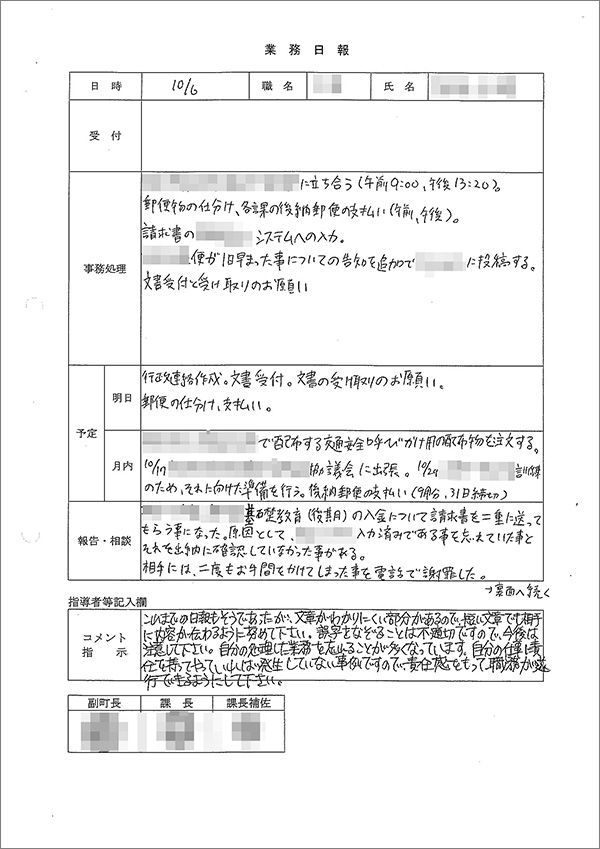 業務日報
日時 10/6 職名 氏名
受付
事務処理
に立ち合う(午前9:00、午後13:20)。
郵便物の仕分け、各課の後納郵便の支払い(午前、午後)。
請求書の システムへの入力。
便が1日早まった事についての告知を追加で に投稿する。
文書受付と受け取りのお願い
予定
明日
行政連絡作成。文書受付。文書の受け取りのお願い。
郵便の仕分け、支払い。
月内
で配布する交通安全呼びかけ用の配布物を注文する。
10/17 協議会に出張。10/24
のため、それに向けた準備を行う。後納郵便の支払い(9月分、31日締切)
報告・相談
基礎教育(後期)の入金について請求書を二重に送って
もらう事になった。原因として、 入力済みである事を忘れていた事と
それを出納に確認していなかった事がある。
相手には、二度もお手間をかけてしまった事を電話で謝罪した。
裏面へ続く
指導者等記入欄
コメント
指示
これまでの日報もそうであったが、文章がわかりにくい部分があるので、短い文章でも相手
に内容が伝わるように努めて下さい。誤字をなぞることは不適切ですので、今後は
注意して下さい。自分の処理した業務を忘れることが多くなっています。自分の仕事に責
任を持ってやっていれば発生していない事例ですので、責任感をもって職務が遂
行できるようにして下さい。
副町長 課長 課長補佐